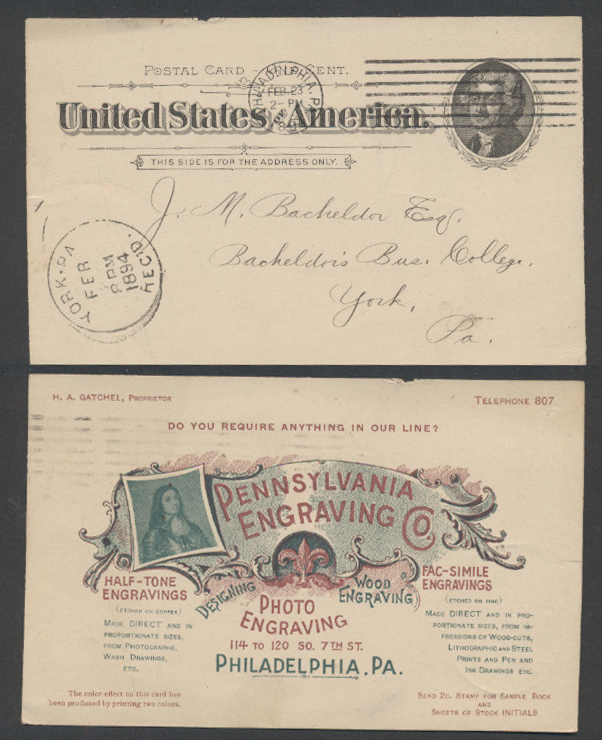 POSTAL CARD – ONE CENT.
United States of America.
THIS SIDE IS FOR THE ADDRESS ONLY.
PHILADELPHIA, PA.
FEB 23
2 - PM
J. M. Bacheldor Esq.
Bacheldor's Bus. College,
York,
Pa.
YORK, PA
FEB
8 PM
1894
REC'D.
H. A. GATCHEL, PROPRIETOR
TELEPHONE 807.
DO YOU REQUIRE ANYTHING IN OUR LINE?
PENNSYLVANIA
ENGRAVING CO
HALF-TONE
ENGRAVINGS
(ETCHED ON COPPER)
MADE DIRECT AND IN
PROPORTIONATE SIZES,
FROM PHOTOGRAPHS,
WASH DRAWINGS,
ETC.
DESIGNING
WOOD
ENGRAVING
PHOTO
ENGRAVING
114 TO 120 SO. 7TH ST.
PHILADELPHIA, PA.
FAC-SIMILE
ENGRAVINGS
(ETCHED ON ZINC)
MADE DIRECT AND IN PRO-
PORTIONATE SIZES, FROM IM-
PRESSIONS OF WOOD-CUTS,
LITHOGRAPHIC AND STEEL
PRINTS AND PEN AND
INK DRAWINGS ETC.
The color effect on this card has
been produced by printing two colors.
SEND 2C. STAMP FOR SAMPLE BOOK
AND
SHEETS OF STOCK INITIALS